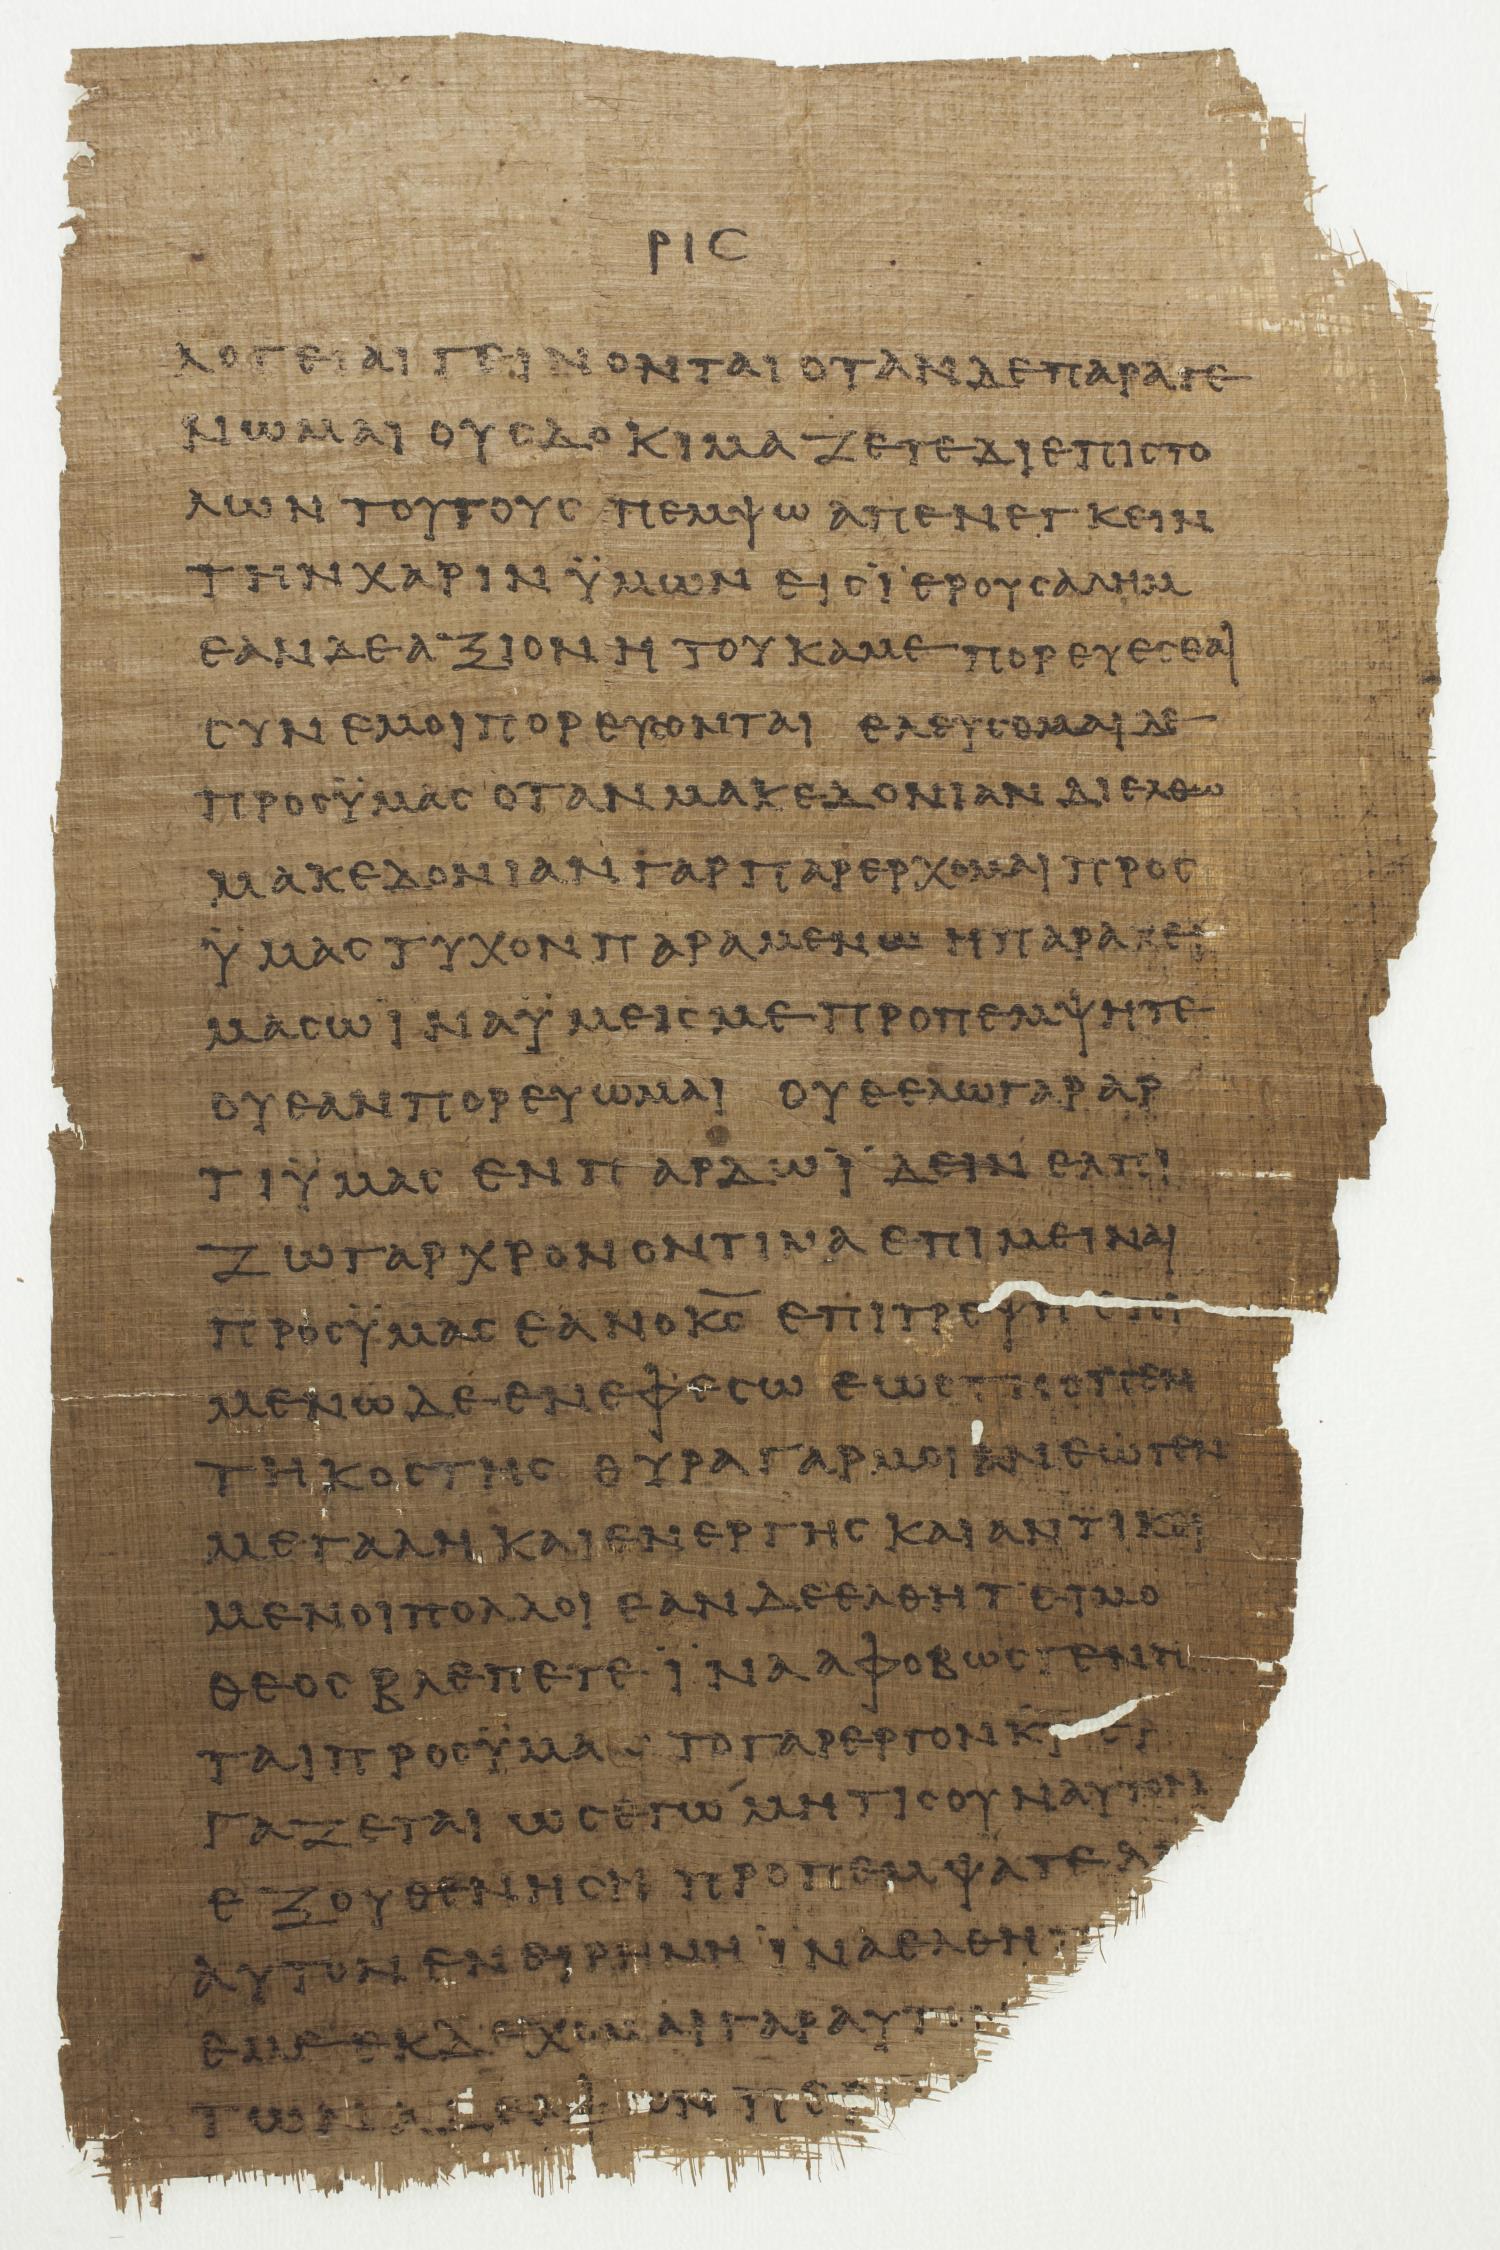 ΡΙϚ
ΛΟΓΕΙΑΙ ΓΕΙΝΟΝΤΑΙ ΟΤΑΝ ΔΕ ΠΑΡΑΓΕ
ΝΩΜΑΙ ΟΥϹ ΔΟΚΙΜΑΖΕΤΕ ΔΙ ΕΠΙϹΤΟ
ΛΩΝ ΤΟΥΤΟΥϹ ΠΕΜΨΩ ΑΠΕΝΕΓΚΕΙΝ
ΤΗΝ ΧΑΡΙΝ ΫΜΩΝ ΕΙϹ ΪΕΡΟΥϹΑΛΗΜ
ΕΑΝ ΔΕ ΑΞΙΟΝ Η ΤΟΥ ΚΑΜΕ ΠΟΡΕΥΕϹΘΑΙ
ϹΥΝ ΕΜΟΙ ΠΟΡΕΥϹΟΝΤΑΙ ΕΛΕΥϹΟΜΑΙ ΔΕ
ΠΡΟϹ ΫΜΑϹ ΟΤΑΝ ΜΑΚΕΔΟΝΙΑΝ ΔΙΕΛΘΩ
ΜΑΚΕΔΟΝΙΑΝ ΓΑΡ ΠΑΡΕΡΧΟΜΑΙ ΠΡΟϹ
ΫΜΑϹ ΤΥΧΟΝ ΠΑΡΑΜΕΝΩ Η ΠΑΡΑΧΕΙ
ΜΑϹΩ ΙΝΑ ΫΜΕΙϹ ΜΕ ΠΡΟΠΕΜΨΗΤΕ
ΟΥ ΕΑΝ ΠΟΡΕΥΩΜΑΙ ΟΥ ΘΕΛΩ ΓΑΡ ΑΡ
ΤΙ ΫΜΑϹ ΕΝ ΠΑΡΔΩ ΪΔΕΙΝ ΕΛΠΙ
ΖΩ ΓΑΡ ΧΡΟΝΟΝ ΤΙΝΑ ΕΠΙΜΕΙΝΑΙ
ΠΡΟϹ ΫΜΑϹ ΕΑΝ Ο Κ̅Ϲ̅ ΕΠΙΤΡΕΨΗ ΕΠΙ
ΜΕΝΩ ΔΕ ΕΝ ΕΦΕϹΩ ΕΩϹ ΤΗϹ ΠΕΝ
ΤΗΚΟϹΤΗϹ ΘΥΡΑ ΓΑΡ ΜΟΙ ΑΝΕΩΓΕΝ
ΜΕΓΑΛΗ ΚΑΙ ΕΝΕΡΓΗϹ ΚΑΙ ΑΝΤΙΚΕΙ
ΜΕΝΟΙ ΠΟΛΛΟΙ ΕΑΝ ΔΕ ΕΛΘΗ ΤΕΙΜΟ
ΘΕΟϹ ΒΛΕΠΕΤΕ ΪΝΑ ΑΦΟΒΩϹ ΓΕΝΗ
ΤΑΙ ΠΡΟϹ ΫΜΑϹ ΤΟ ΓΑΡ ΕΡΓΟΝ Κ̅Υ̅ ΕΡ
ΓΑΖΕΤΑΙ ΩϹ ΕΓΩ ΜΗ ΤΙϹ ΟΥΝ ΑΥΤΟΝ
ΕΞΟΥΘΕΝΗϹΗ ΠΡΟΠΕΜΨΑΤΕ ΔΕ
ΑΥΤΟΝ ΕΝ ΕΙΡΗΝΗ ΪΝΑ ΕΛΘΗ
ΕΜΕ ΕΚΔΕΧΟΜΑΙ ΓΑΡ ΑΥΤΟΝ
ΤΩΝ ΑΔΕΛΦΩΝ ΠΕΡ